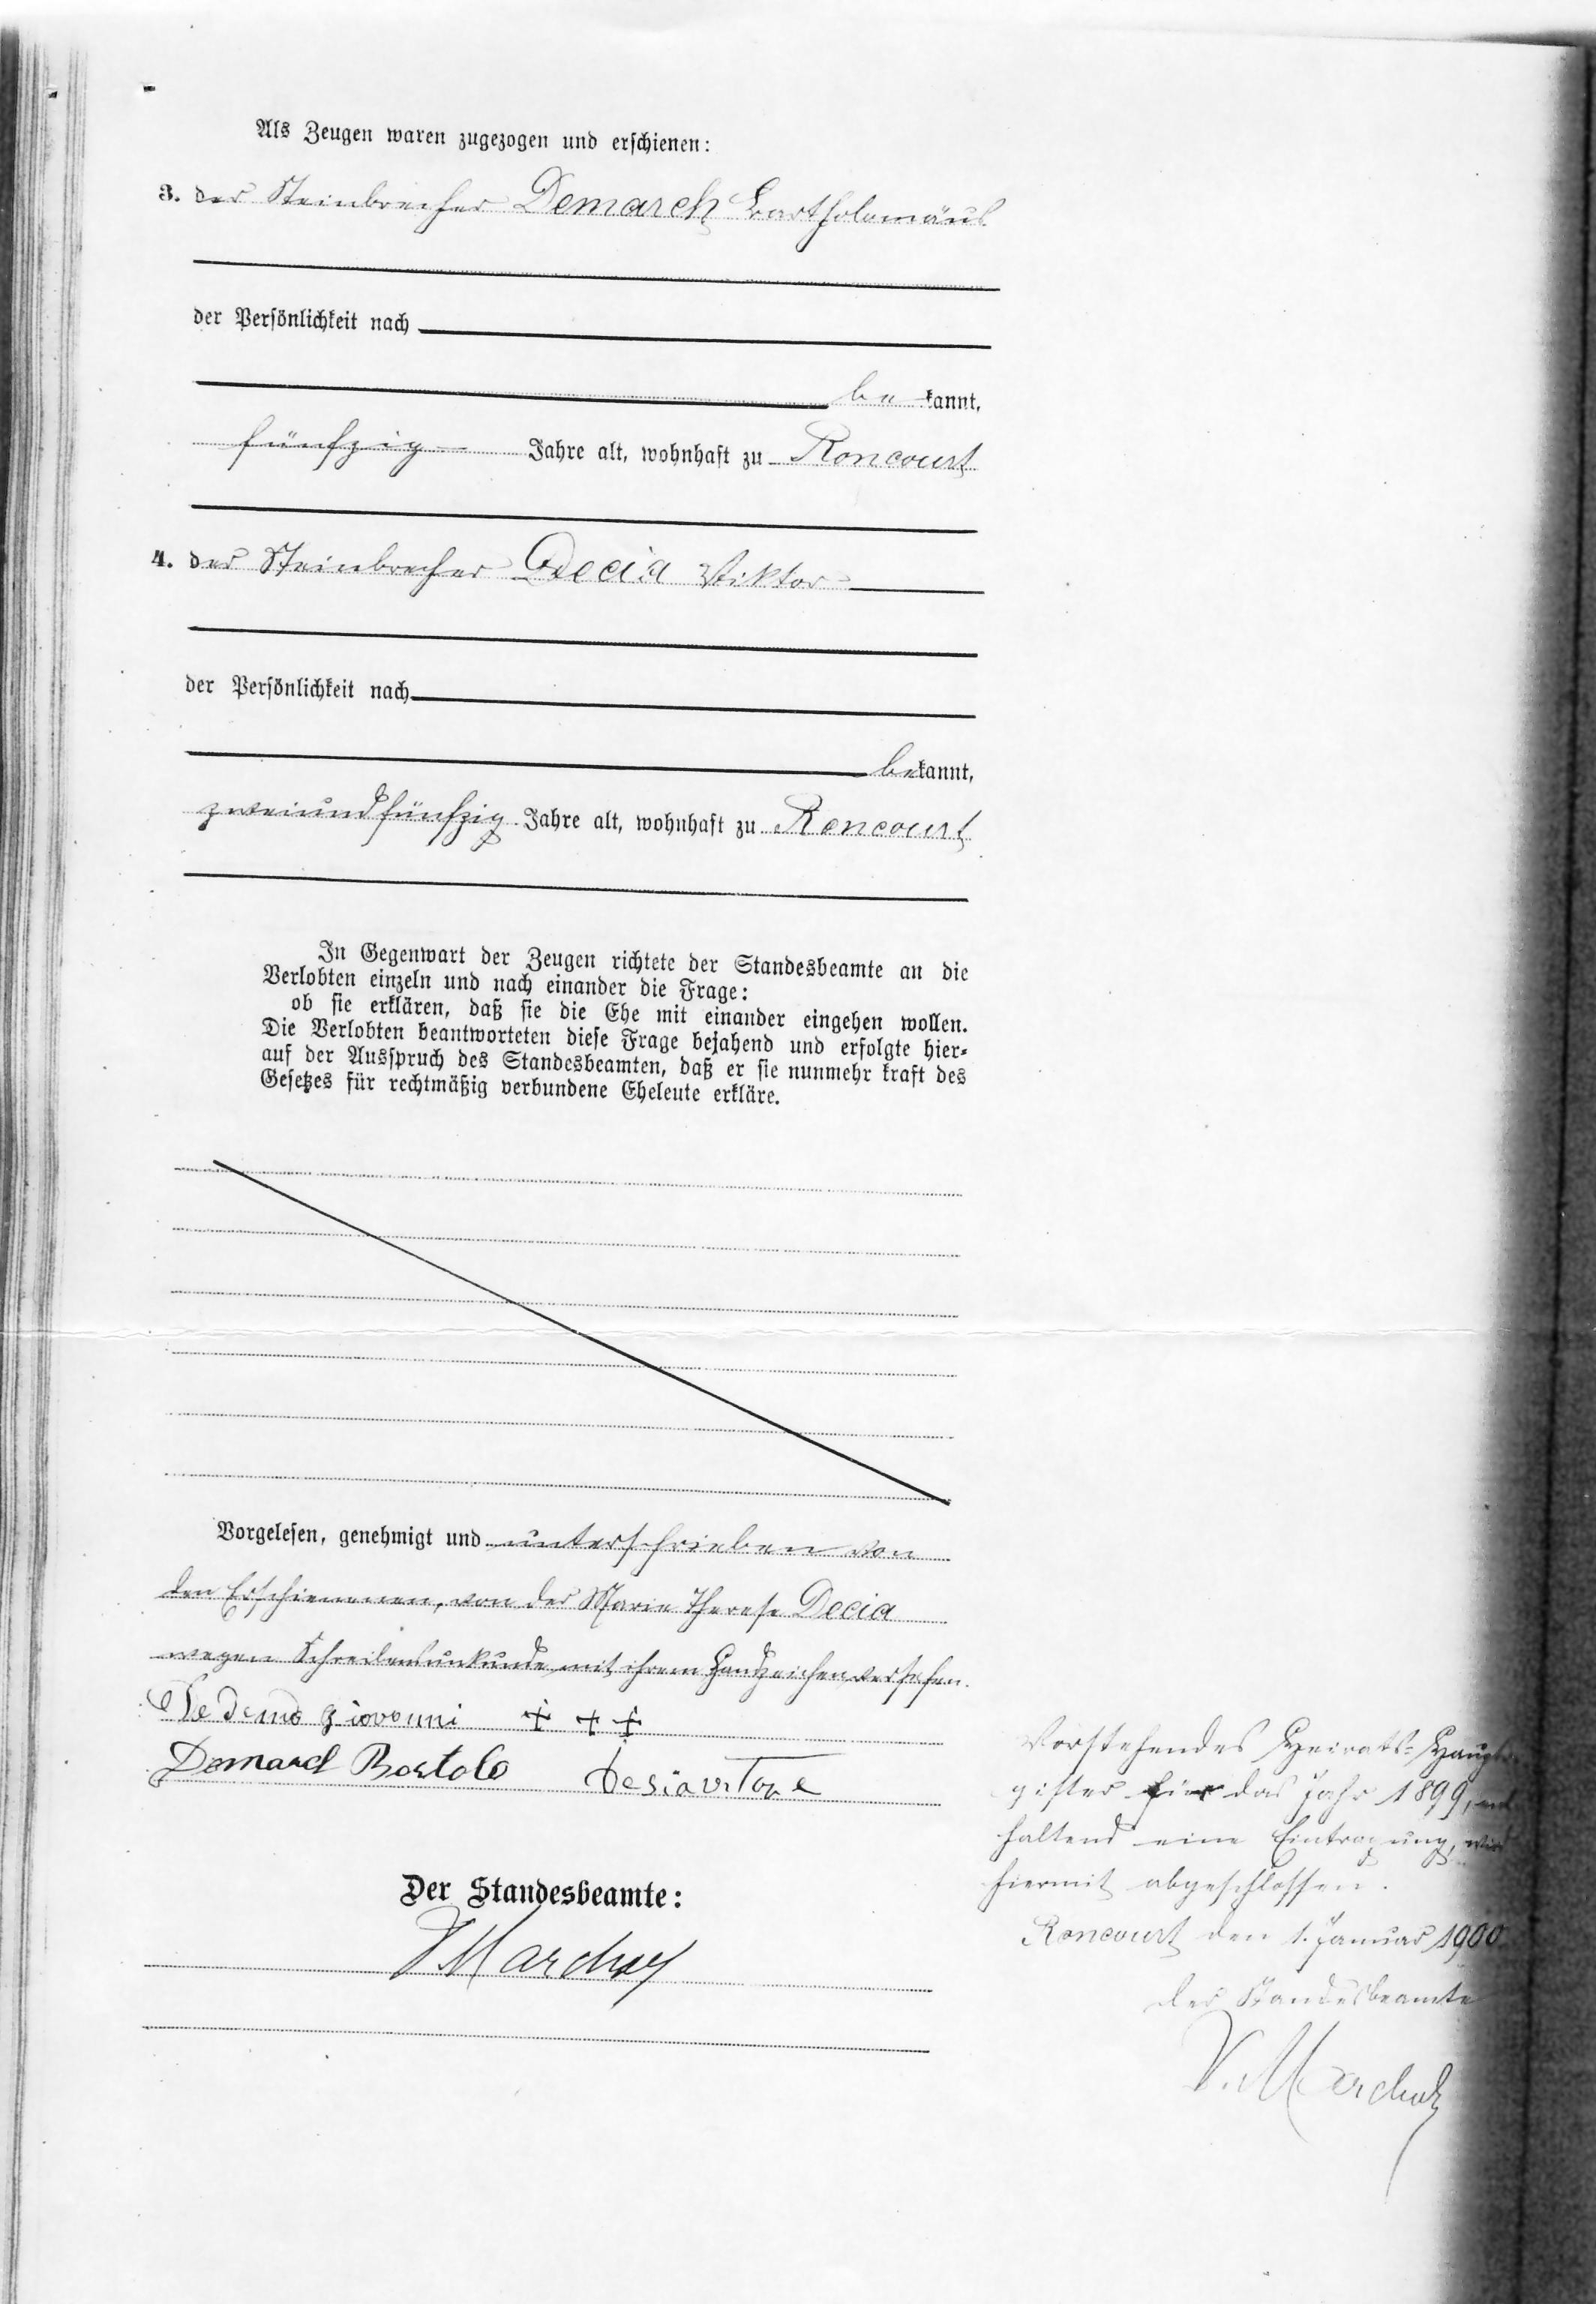 Als Zeugen waren zugezogen und erschienen:
3. der Steinbrecher Demarch Bartholomäus
der Persönlichkeit nach
be kannt,
fünfzig Jahre alt, wohnhaft zu Roncourt
4. der Steinbrecher Decia Viktor
der Persönlichkeit nach
bekannt,
zweiundfünfzig Jahre alt, wohnhaft zu Roncourt
In Gegenwart der Zeugen richtete der Standesbeamte an die
Verlobten einzeln und nach einander die Frage:
ob sie erklären, daß sie die Ehe mit einander eingehen wollen.
Die Verlobten beantworteten diese Frage bejahend und erfolgte hier-
auf der Ausspruch des Standesbeamten, daß er sie nunmehr kraft des
Gesetzes für rechtmäßig verbundene Eheleute erkläre.
Vorgelesen, genehmigt und unterschrieben von
den Erschienenen, von der Marie Therese Decia
wegen Schreibensunkunde mit ihrem Handzeichen versehen.
giovanni + + +
Demarch Bortolo
Der Standesbeamte:
Vorstehendes Heirats-Haupt
gister für das Jahr 1899, ent
haltend eine Eintragung, wird
hiermit abgeschlossen.
Roncourt den 1. Januar 1900
Der Standesbeamte